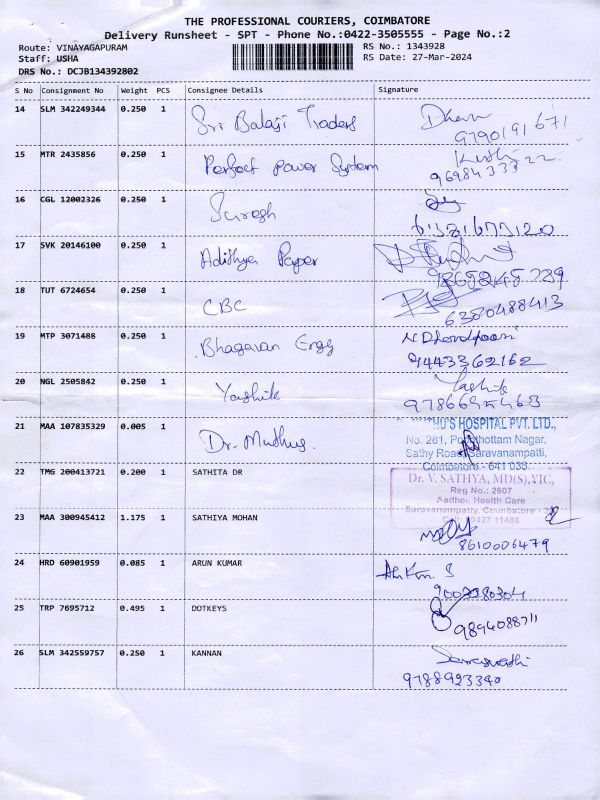 THE PROFESSIONAL COURIERS, COIMBATORE
Delivery Runsheet - SPT - Phone No.:0422-3505555 - Page No.:2
Route: VINAYAGAPURAM RS No.: 1343928
Staff: USHA RS Date: 27-Mar-2024
DRS No.: DCJB134392802
S No Consignment No Weight PCS Consignee Details Signature
14 SLM 342249344 0.250 1 Sri Balaji Traders
9790191671
15 MTR 2435856 0.250 1 Perfect power System
9698433322
16 CGL 12002326 0.250 1 Suresh
17 SVK 20146100 0.250 1 Adithya Paper
18 TUT 6724654 0.250 1 CBC
6380488413
19 MTP 3071488 0.250 1 Bhagavan Engg
9443362162
20 NGL 2505842 0.250 1 Yashik
Yashik
21 MAA 107835329 0.005 1 Dr. Muthus.
HOSPITAL PVT. LTD.,
No. 281, Nagar,
Sathy Road, Saravanampatti,
Coimbatore - 641 035.
22 TMG 200413721 0.200 1 SATHITA DR
Dr. V. SATHYA, MD(S),YIC,
Reg No.: 2607
Health Care
Saravanampatty, Coimbatore
23 MAA 300945412 1.175 1 SATHIYA MOHAN
8610006479
24 HRD 60901959 0.085 1 ARUN KUMAR
25 TRP 7695712 0.495 1 DOTKEYS
9894088711
26 SLM 342559757 0.250 1 KANNAN
9788923340